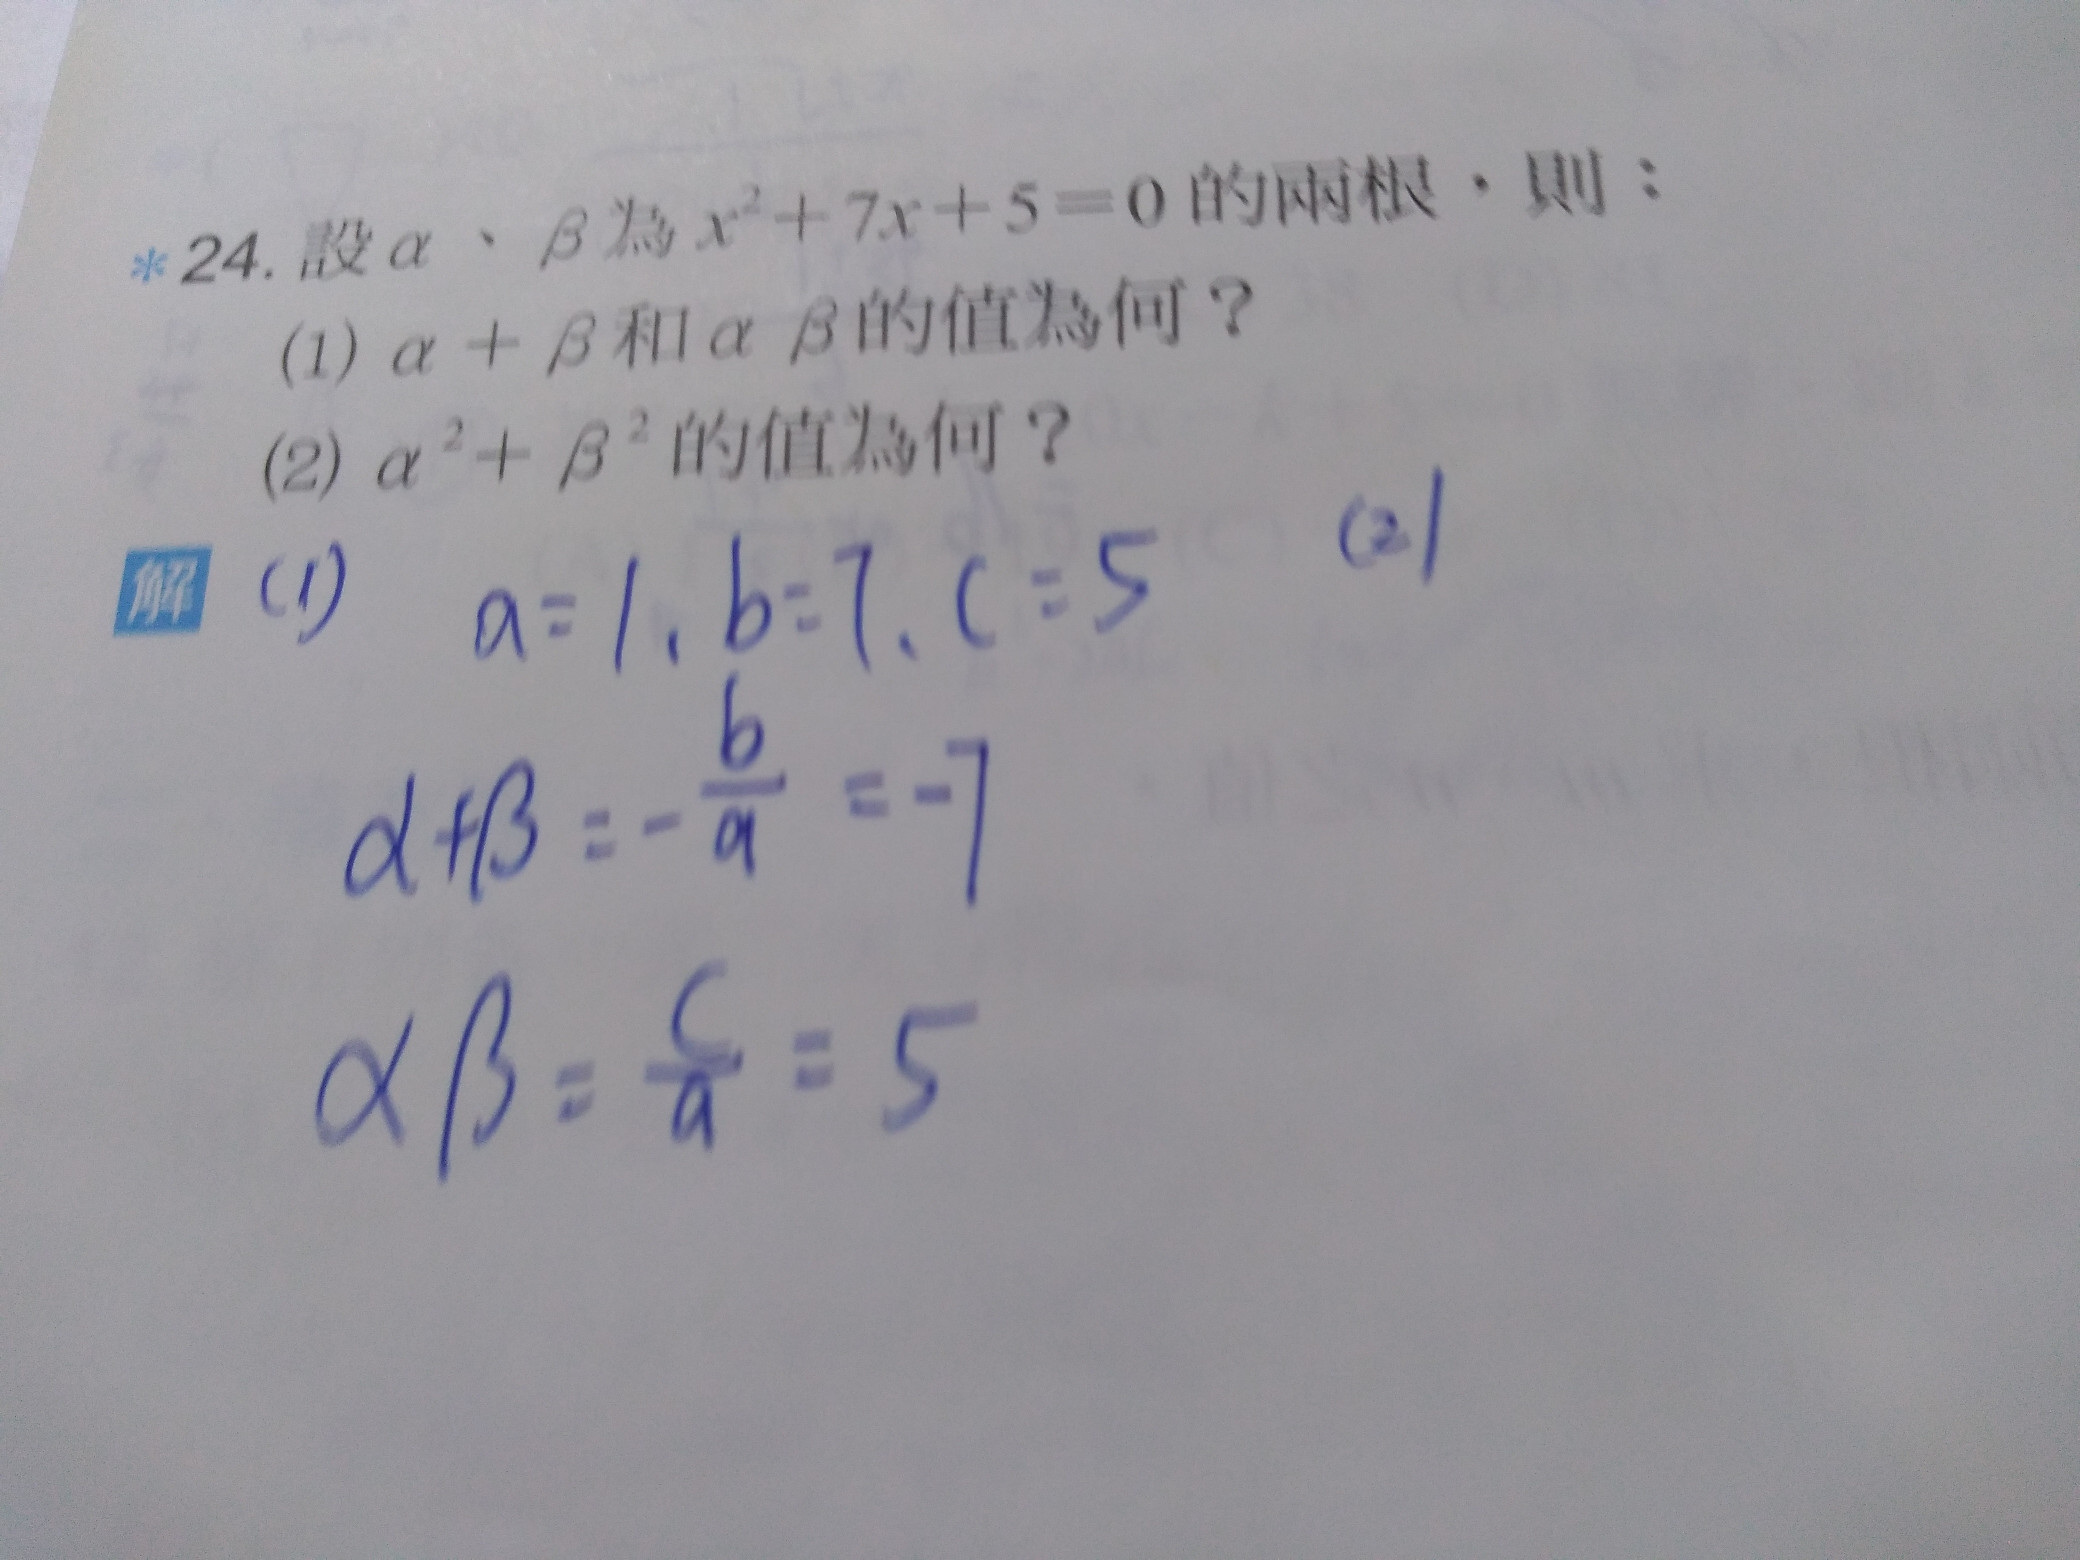 *24. 設α、β為x²+7x+5=0的兩根,則:
(1) α+β和αβ的值為何?
(2) α²+β²的值為何?
解 (1) a=1、b=7、c=5 (2)
α+β=-b/a=-7
αβ=c/a=5